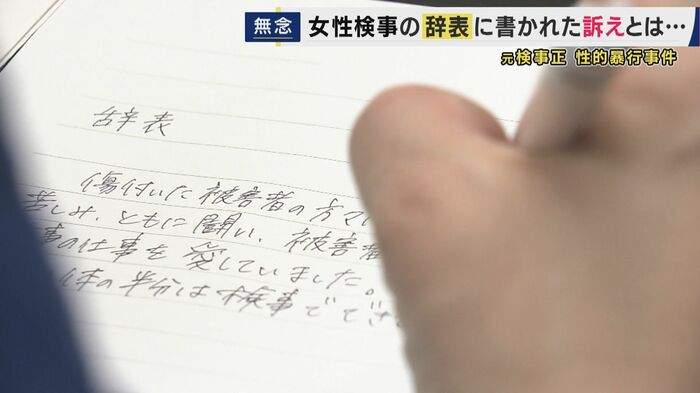 無念 女性検事の辞表に書かれた訴えとは…
元検事正 性的暴行事件
辞表
傷付いた被害者の方々
苦しみ、ともに闘い、被害者
事の仕事を愛していました。
体の半分は検事ででき